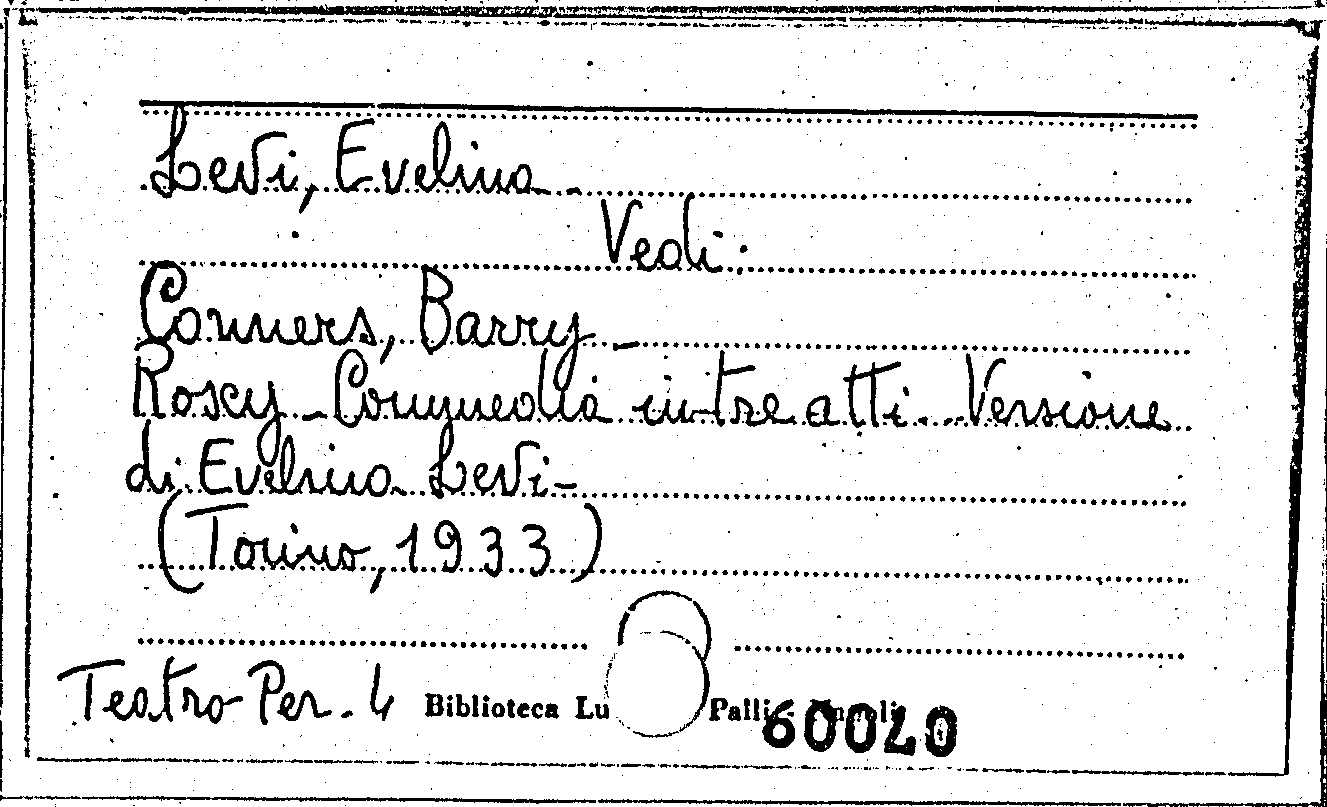 Levi, Evelina -
Vedi:
Conners, Barry -
Roxy - Commedia in tre atti - Versione
di Evelina Levi -
(Torino, 1933)
Teatro Per. 4 Biblioteca Lu Palli
60040